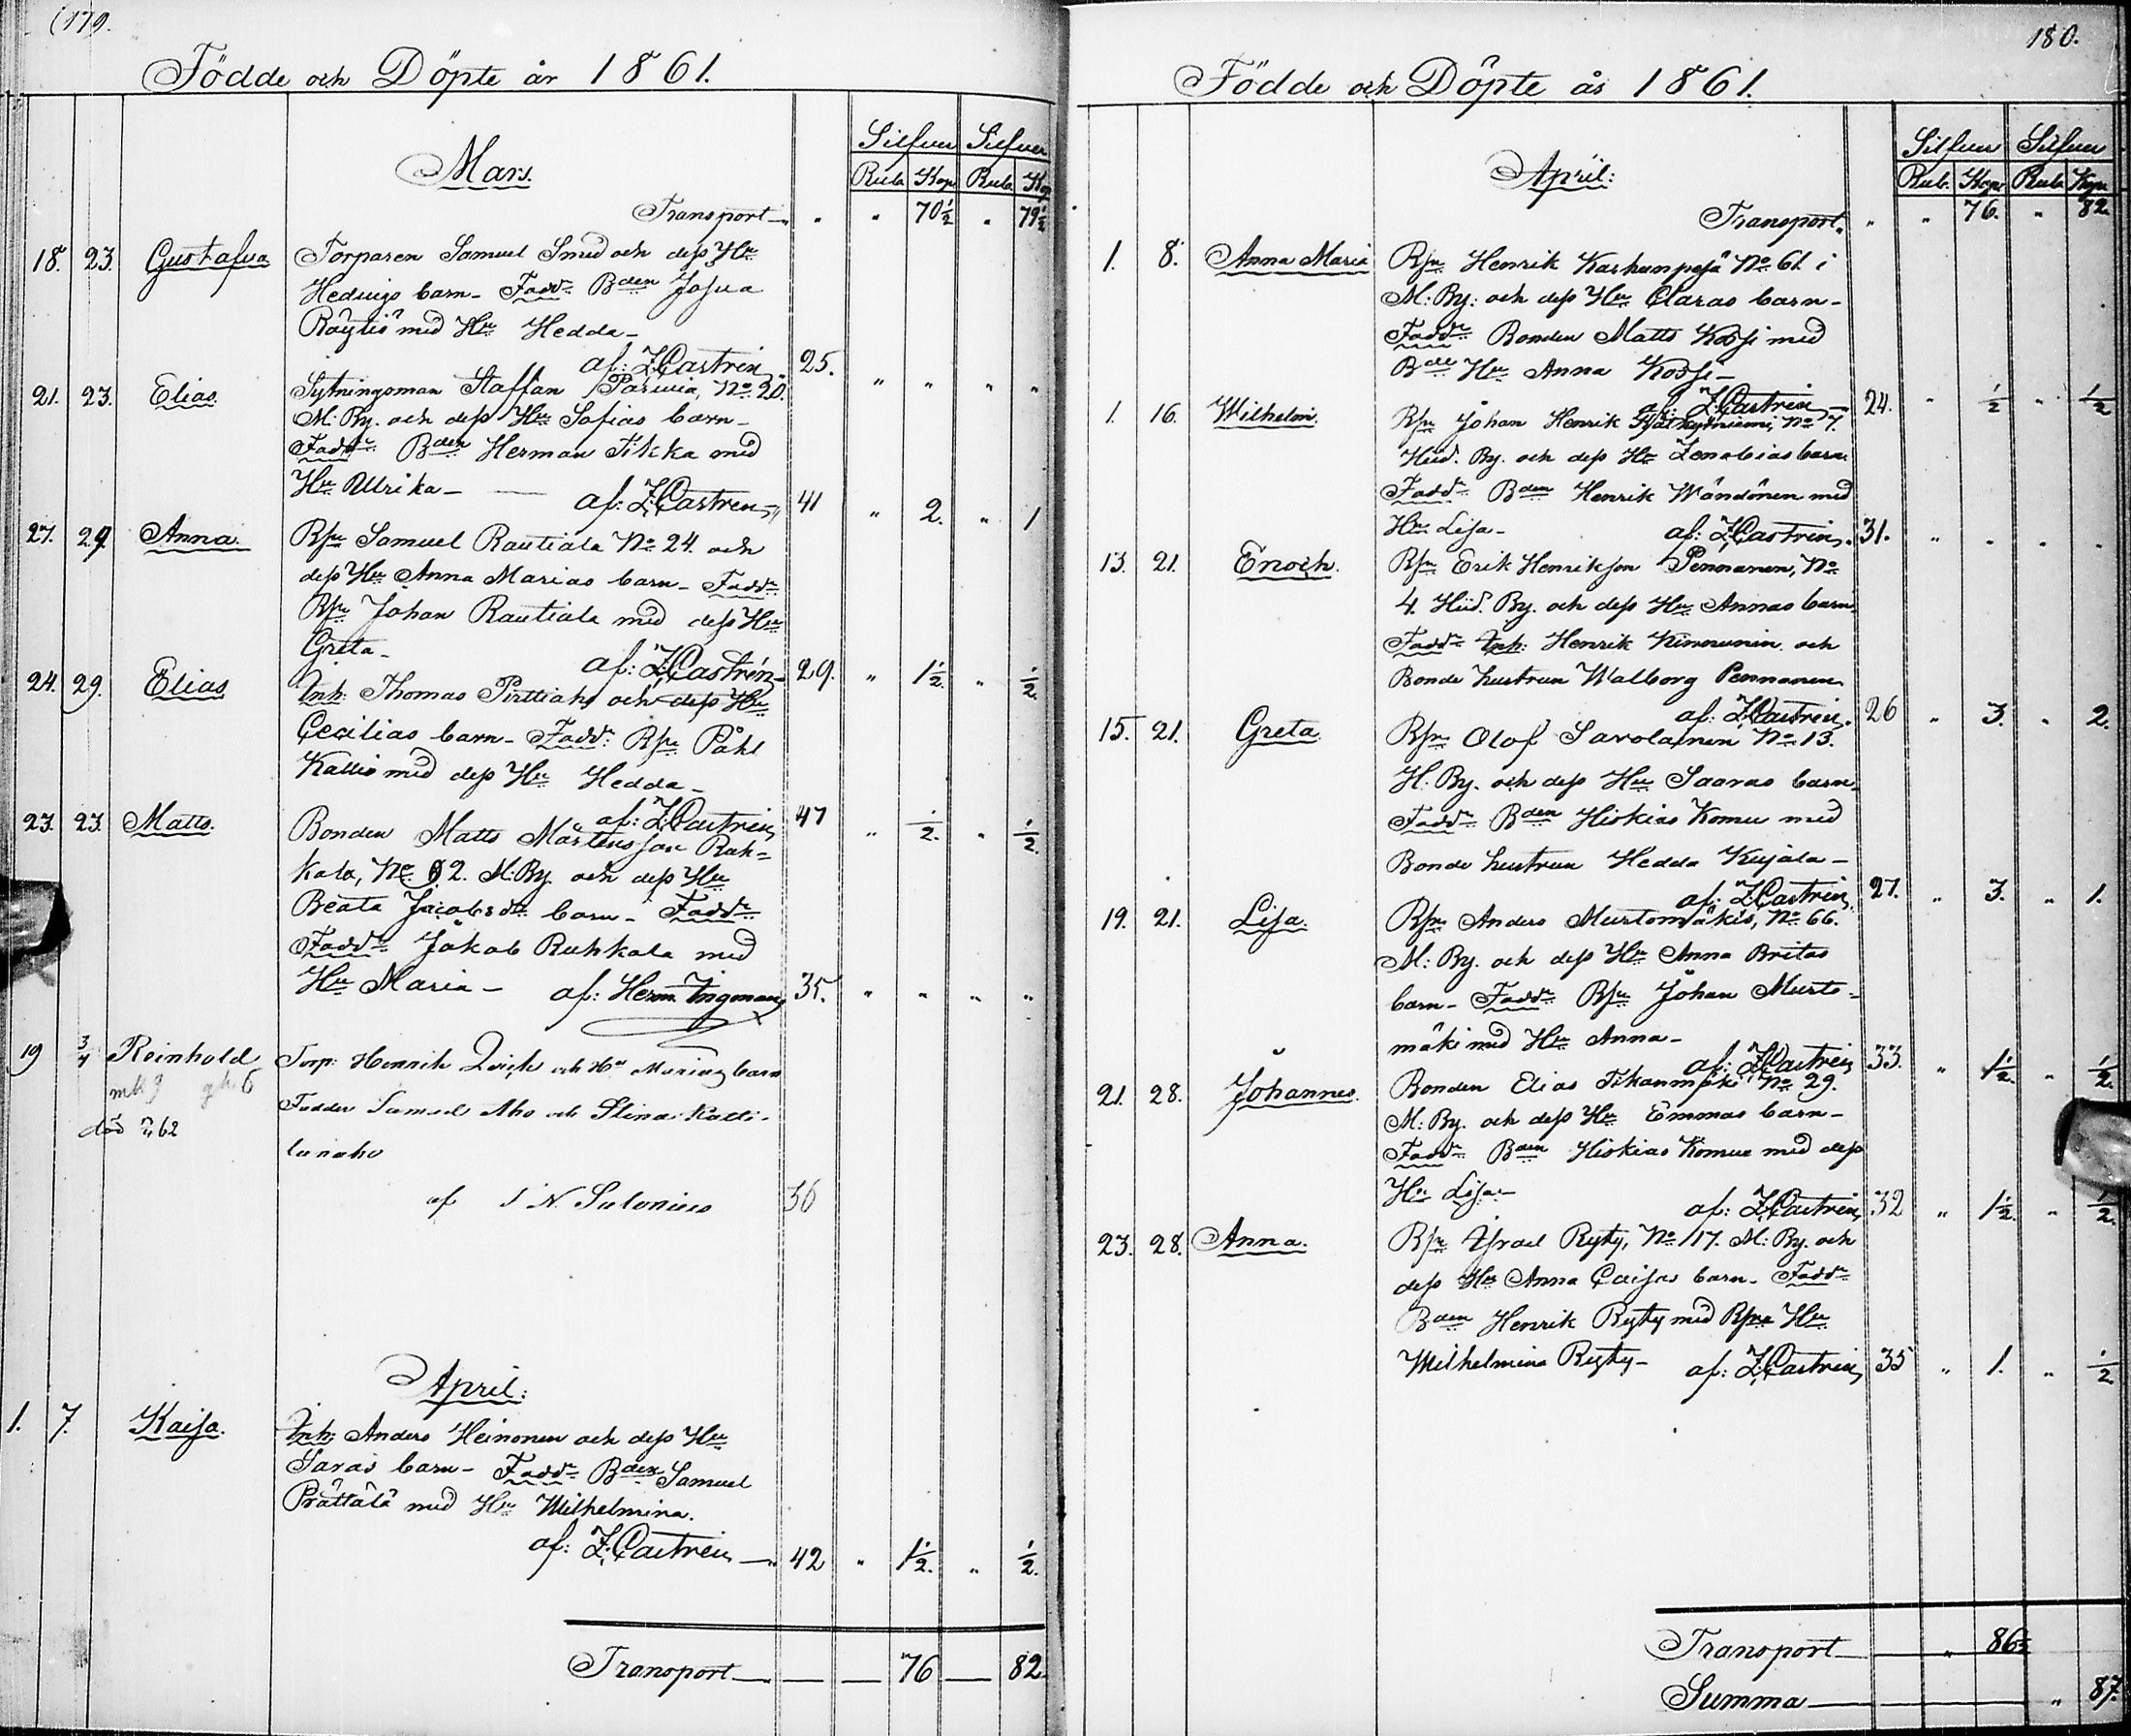 179.
Födde och Döpte år 1861.
Silfver Silfver
Mars.
Rub. Kop. Rub. Kop
Transport — „ „ 70½ „ 79½
18. 23. Gustafva Torparen Samuel Smed och dess Hu
Hedvigs barn - Fadd: Bden Josua
Räytiö med Hu Hedda -
af: Z. Castrén 25. „ „ „ „
21. 23. Elias. Sytningsman Staffan No 20.
M: By. och dess Hu Sofias barn -
Fadd: Bden Herman Tikka med
Hu Ulrika - — af: Z. Castren 41 „ 2. „ 1
27. 29. Anna. Rsn Samuel Rautiala No 24. och
dess Hu Anna Marias barn - Fadd:
Rsn Johan Rautiala med dess Hu
Greta -
af: Z. Castrén - 29. „ 1½. „ ½.
24. 29. Elias Inh: Thomas och dess Hu
Cecilias barn - Fadd: Rsn Påhl
Kallio med dess Hu Hedda -
af: Z. Castrén 47 „ ½. „ ½.
23. 23. Matts. Bonden Matts Mårtensson Ruh=
kala, No 2. M: By och dess Hu
Beata Jacobsdr barn - Fadd:
Fadd: Jakob Ruhkala med
Hu Maria - af: Herm. Ingman 35. „ „ „ „
19 3/4 Reinhold Torp: Henrik och Hu Marias barn
Faddr Samuel Aho och Stina Kalli-
död 62
lunaho
af J N Salonius 36
April:
1. 7. Kaisa. Inh: Anders Heinonen och dess Hu
Saras barn - Fadd: Bden Samuel
Prättälä med Hu Wilhelmina.
af: Z. Castrén — 42 „ 1½. „ ½.
Transport — — — 76 — 82.
180.
Födde och Döpte år 1861.
Silfver Silfver
April:
Rub. Kop. Rub. Kop.
Transport. „ „ 76. „ 82.
1. 8. Anna Maria Rsn Henrik Karhunpesä No 61. i
M: By: och dess Hu Claras barn -
Fadd: Bonden Matts Kossi med
Bde Hu Anna Kossi -
af: Z. Castrén 24. „ ½ „ ½
1. 16. Wilhelm. Rsn Johan Henrik No 7.
Hud. By. och dess Hu Zenobias barn.
Fadd: Bden Henrik Wändönen med
Hu Lisa - af: Z. Castrén. 31. „ „ „ „
13. 21. Enoch. Rsn Erik Henriksson Pennanen, No
4. Hud. By. och dess Hu Annas barn
Fadd: Inh: Henrik Kinnunen och
Bonde hustrun Walborg Pennanen
af: Z. Castrén. 26 „ 3. „ 2.
15. 21. Greta Rsn Olof Savolainen No 13.
H: By. och dess Hu Saaras barn.
Fadd: Bden Hiskias Komu med
Bonde hustrun Hedda Kujala -
af: Z. Castrén 27. „ 3. „ 1.
19. 21. Lisa. Rsn Anders Murtomäkis, No 66.
M: By. och dess Hu Anna Britas
barn - Fadd: Rsn Johan Murto=
mäki med Hu Anna -
af: Z. Castrén 33. „ 1½. „ ½.
21. 28. Johannes. Bonden Elias Tikanmäki No 29.
M: By. och dess Hu Emmas barn -
Fadd: Bden Hiskias Komu med dess
Hu Lisa - af: Z. Castrén 32 „ 1½. „ ½.
23. 28. Anna. Rsn Israel Ryty, No 117. M: By. och
dess Hu Anna Caisas barn - Fadd:
Bden Henrik Ryty med Rsns Hu
Wilhelmina Ryty - af: Z. Castrén 35 „ 1. „ ½
Transport — „ 86½
Summa — „ 87.